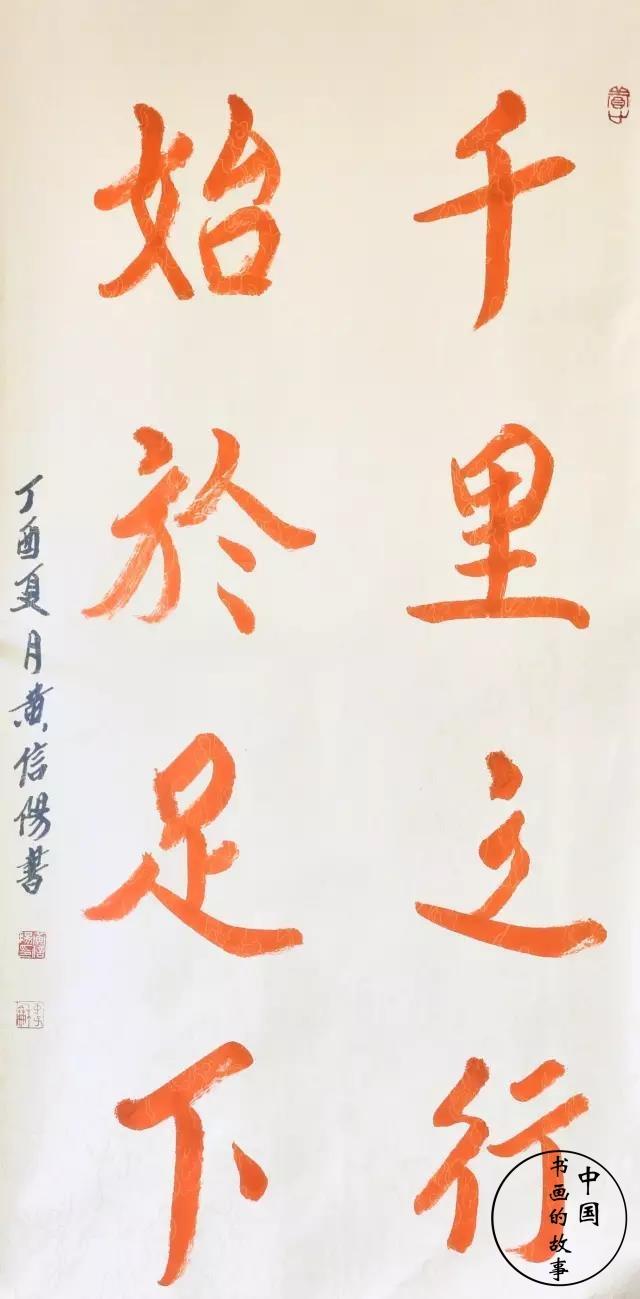 千里之行
始於足下
丁酉夏月黄信阳書
中国
书画的故事